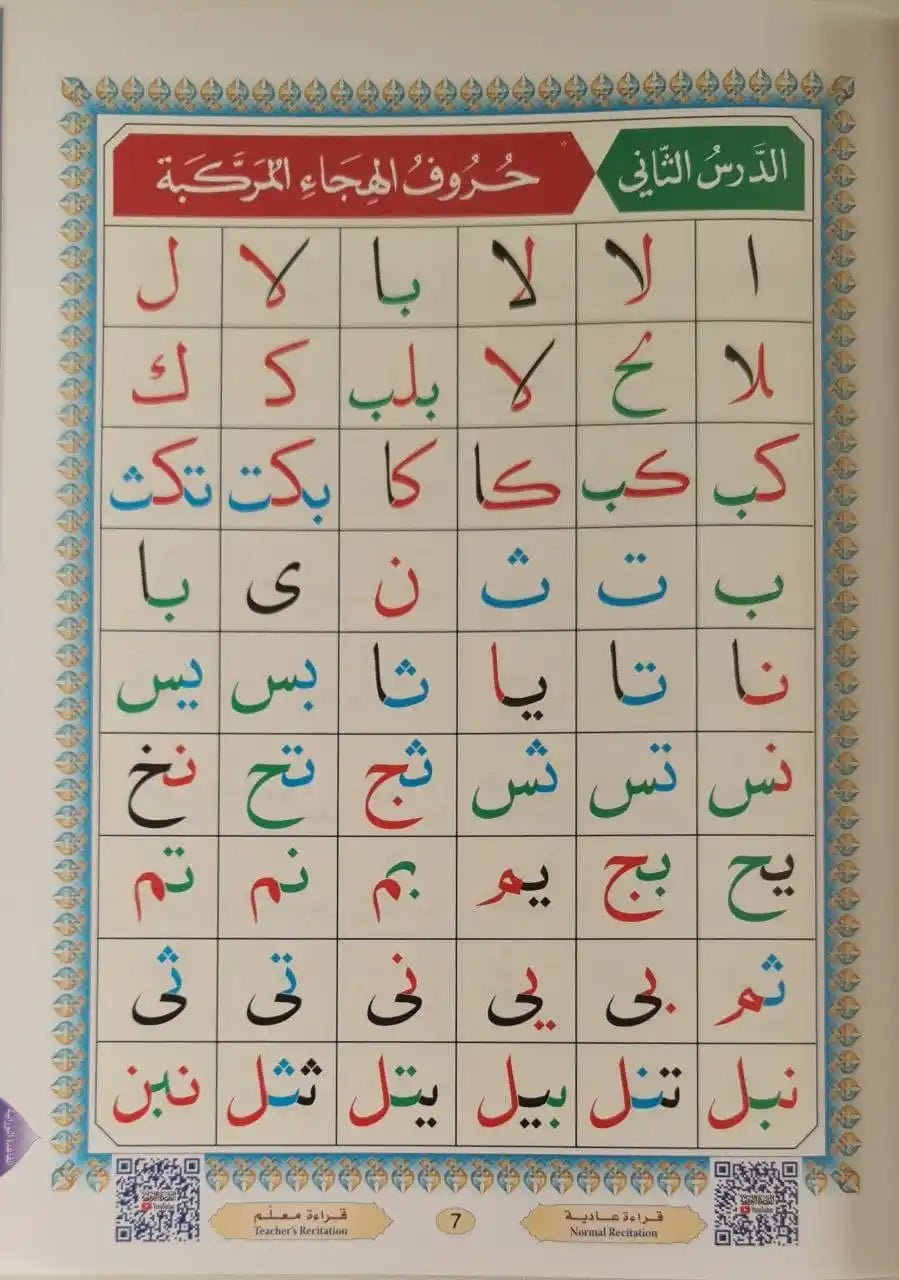 الدَّرسُ الثَّاني حُرُوفُ الهِجَاءِ المُرَكَّبَة
ا لا لا با لا ل
لا لح لا بلب ك ك
كب كب كا كا بكت تكث
ب ت ث ن ى با
نا تا يا ثا بس يس
نس تس ثس ثج تح نخ
يح بج يم بم نم تم
ثم بى يى نى تى ثى
نبل تنل بيل يتل ثثل نبن
قراءة عادية 7 قراءة معلّم
Normal Recitation Teacher's Recitation